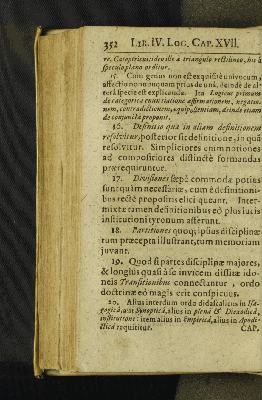 352 LIB. IV. LOG. CAP. XVII.
re. Catoptricus ideo ille à triangulo rectilineo, hic à
speculo plano orditur.
15. Cum genus non est exquisitè univocum,
affectio non nunquam prius de unâ, deinde de al-
terâ specie est explicanda. Ita Logicus primum
de categorica enunciatione affirmationem, negatio-
nem, contradictionem, æquipollentiam, deinde etiam
de conjunctâ proponit.
16. Definitio quæ in aliam definitionem
resolvitur, posterior sit definitione, in quâ
resolvitur. Simpliciores enim notiones
ad compositiores distinctè formandas
præ requiruntur.
17. Divisiones sæpè commodæ potius
sunt quàm necessariæ, cum è definitioni-
bus rectè propositis elici queant. Inter-
mixtæ tamen definitionibus eò plus lucis
institutioni tyronum afferunt.
18. Partitiones quoq; ipsius disciplinæ
tum præcepta illustrant, tum memoriam
juvant.
19. Quod si partes disciplinæ majores,
& longius quasi à se invicem dissitæ ido-
neis Transitionibus connectantur, ordo
doctrinæ eò magis erit conspicuus.
20. Alius interdum ordo didascalicus in Isa-
gogicâ, aut Synopticâ, alius in plenâ & Diexodicâ,
institutione: item alius in Empiricâ, alius in Apodi-
cticâ requiritur. CAP.